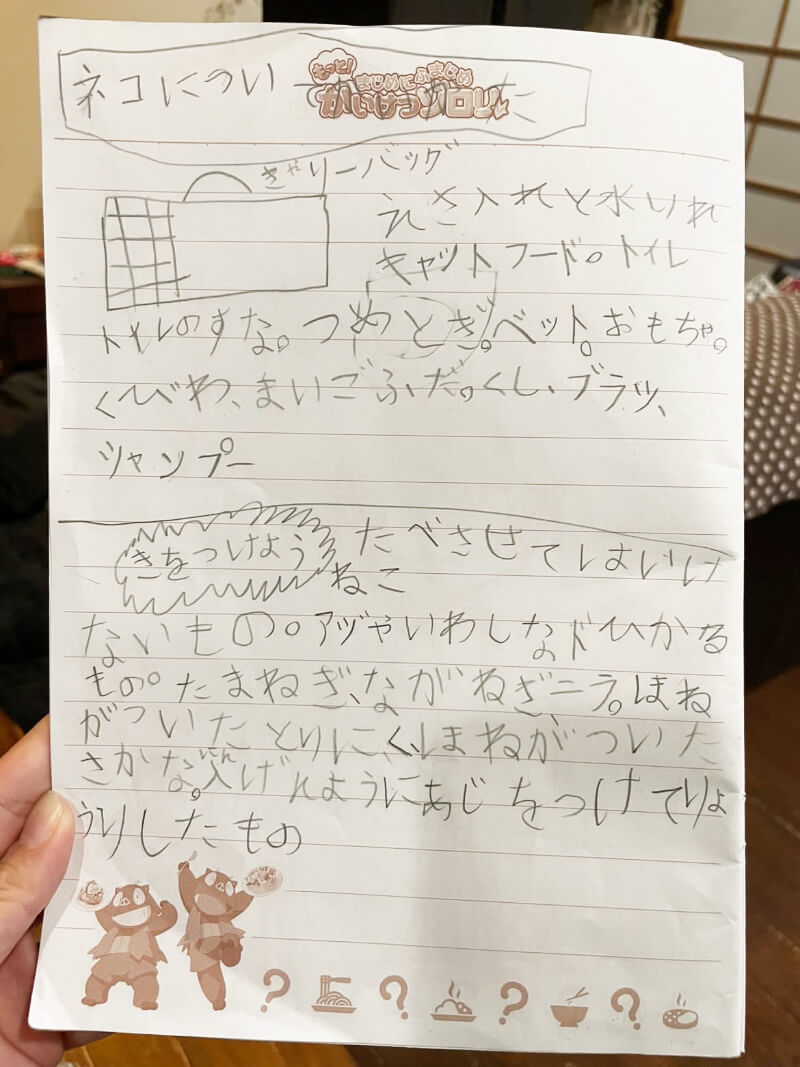 ネコについ
もっと!
まじめにふまじめ
かいけつゾロリ
きゃりーバッグ
えさ入れと水いれ
キャットフード。トイレ
トイレのすな。つめとぎ。ベット。おもちゃ。
くびわ、まいごふだ。くし、ブラッ、
シャンプー
きをつけよう
たべさせてはいけ
ねこ
ないもの。アヅやいわしなドひかる
もの。たまねぎ、ながねぎ、ニラ。ほね
がついたとりにく、ほねがついた
さかな。人げんようにあじをつけてりょ
にん
うりしたもの
? ? ? ?